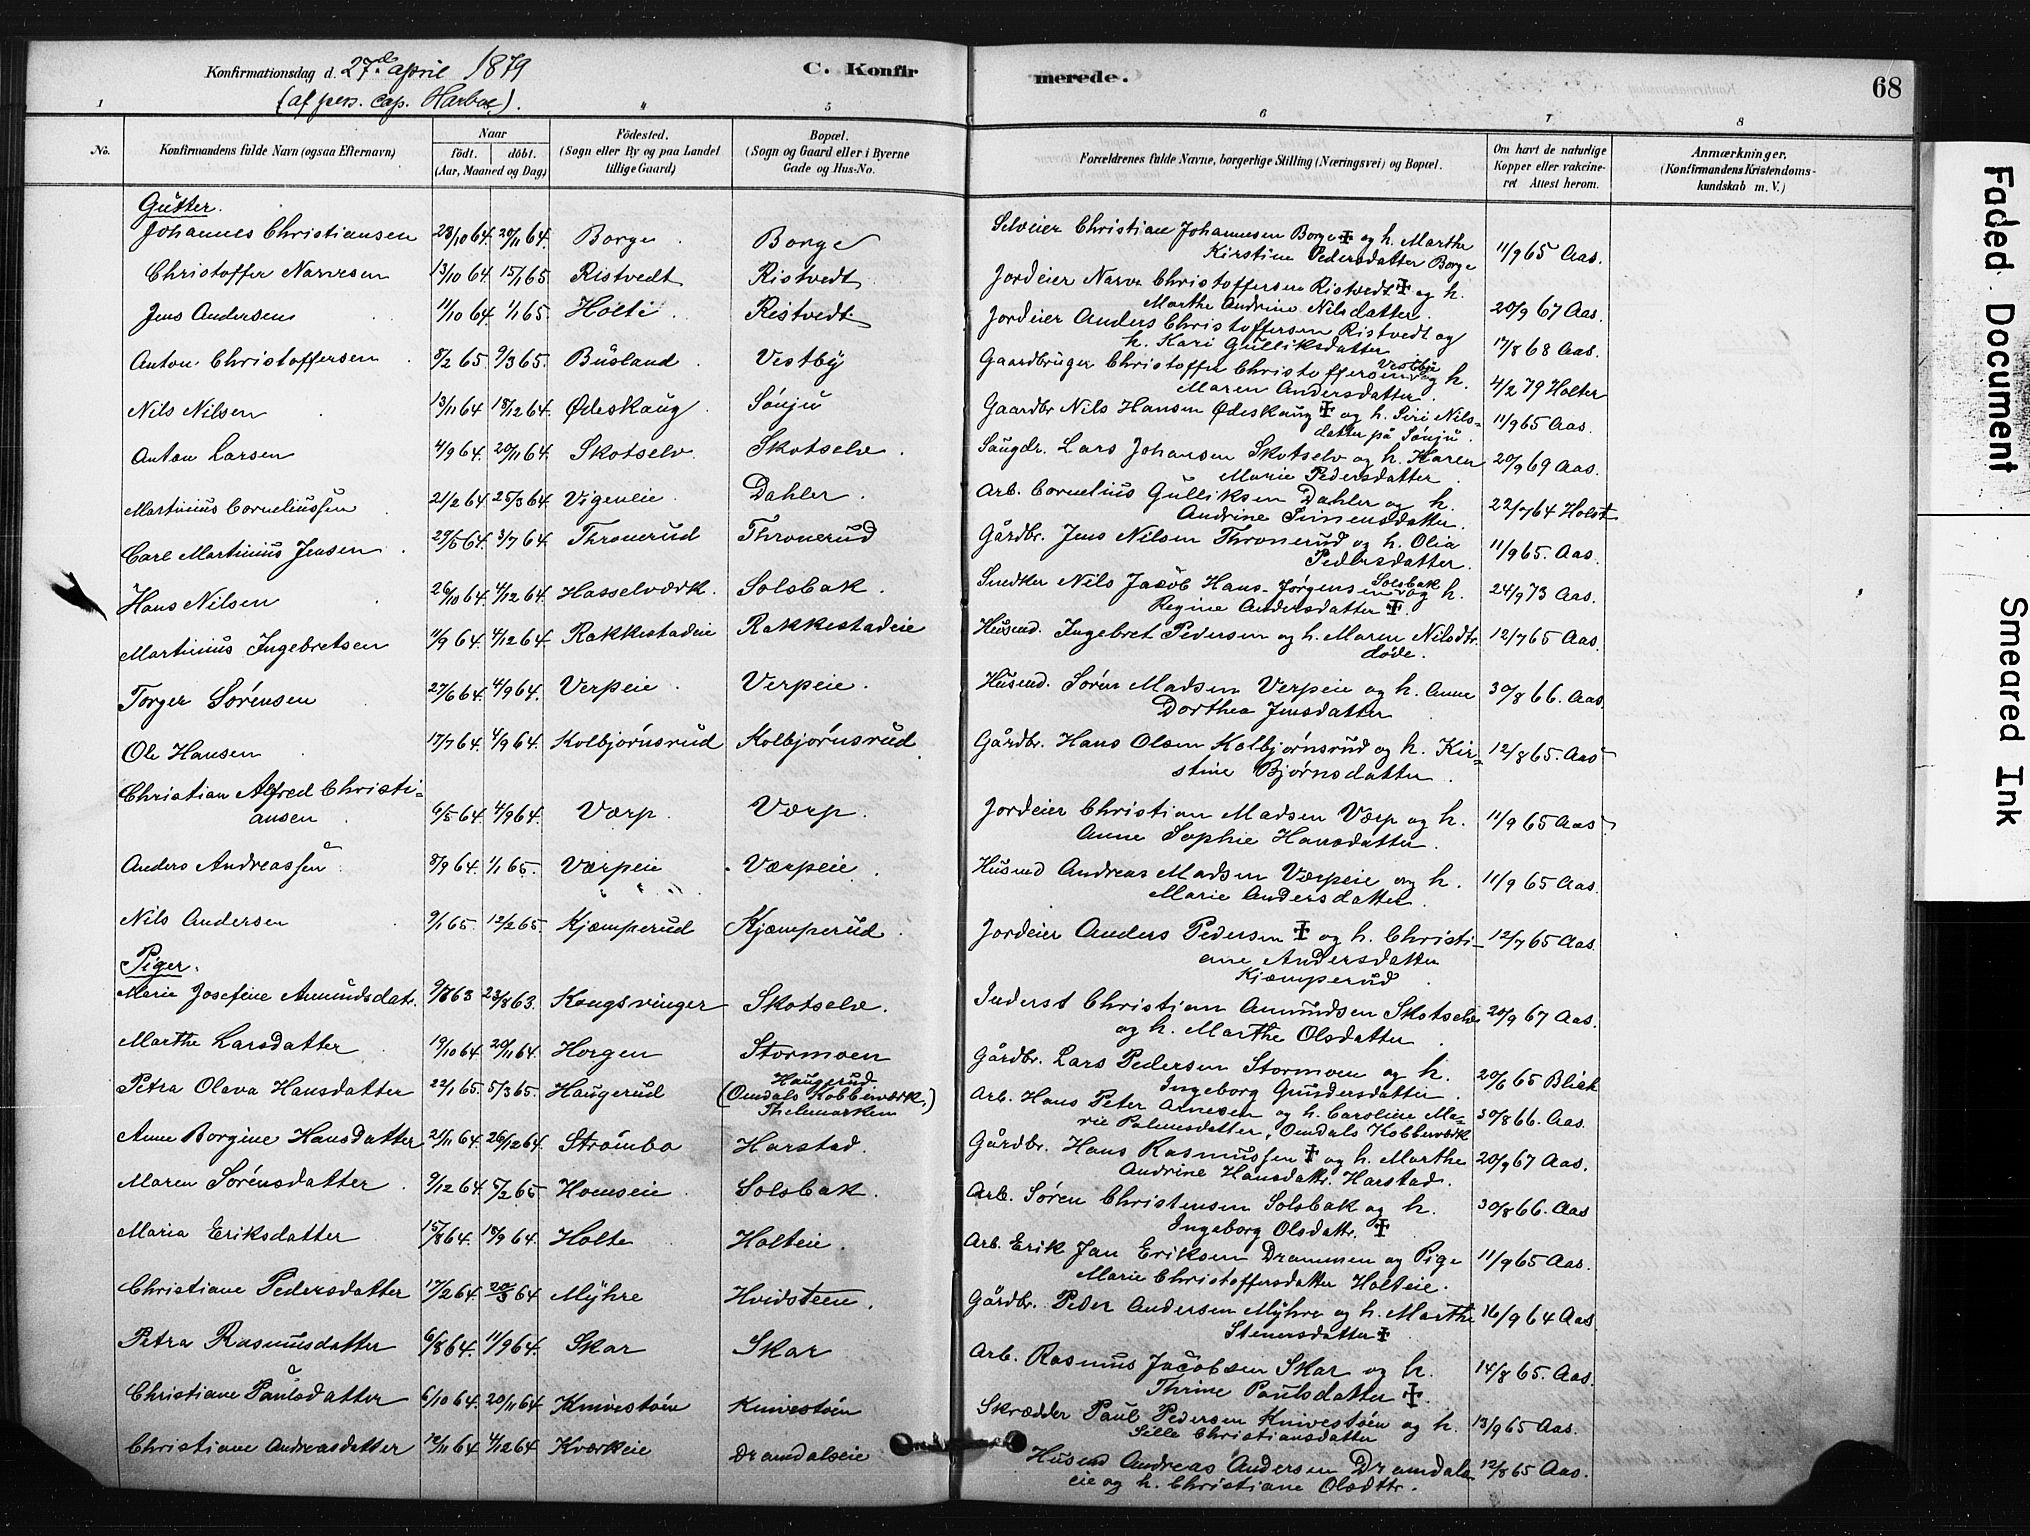 Konfirmationsdag d. 27de april 1879
C. Konfir
merede.
68
(af pers. cap. Harboe).
1 4 5 6 7 8
No. Konfirmandens fulde Navn (ogsaa Efternavn) Naar født. døbt. (Aar, Maaned og Dag) Fødested. (Sogn eller By og paa Landet tillige Gaard) Bopæl. (Sogn og Gaard eller i Byerne Gade og Hus-No. Forældrenes fulde Navne, borgerlige Stilling (Næringsvei) og Bopæl. Om havt de naturlige Kopper eller vakcineret Attest herom. Anmærkninger. (Konfirmandens Kristendomskundskab m. V.)
Gutter.
Johannes Christiansen 28/10 64. 20/11 64. Borge Borge Selveier Christian Johannesen Borge ✝ og h. Marthe Kirstine Pedersdatter Borge 11/9 65 Aas.
Christoffer Narvesen 13/10 64 15/1 65 Ristvedt Ristvedt Jordeier Narve Christoffersen Ristvedt ✝ og h. Marthe Andrine Nilsdatter. 20/9 67 Aas.
Jens Andersen 11/10 64 1/1 65. Holte Ristvedt Jordeier Anders Christoffersen Ristvedt og h. Kari Gulliksdatter 17/8 68 Aas.
Anton Christoffersen 8/2 65 9/3 65. Busland Vestby Gaardbruger Christoffer Christoffersen Vestby og h. Maren Andersdatter. 4/2 79 Holter
Nils Nilsen 13/11 64 18/12 64. Ødeskaug Sønju Gaardbr Nils Hansen Ødeskaug ✝ og h. Siri Nilsdatter på Sønju. 11/9 65 Aas.
Anton Larsen 4/9 64. 20/11 64. Skotselv Skotselv. Saugdr. Lars Johansen Skotselv og h. Karen Marie Pedersdatter. 20/9 69 Aas.
Martinius Corneliussen 21/2 64 25/3 64. Vigeneie. Dahler. Arb. Cornelius Gulliksen Dahler og h. Andrine Simensdatter. 22/7 64 Holst
Carl Martinius Jensen 29/5 64. 3/7 64. Thronerud Thronerud Gårdbr. Jens Nilsen Thronerud og h. Olia Pedersdatter. 11/9 65. Aas.
Hans Nilsen 26/10 64. 4/12 64. Hasselværk. Solsbak. Snedker Nils Jacob Hans-Jørgensen Solsbak og h. Regine Andersdatter ✝. 24/9 73 Aas.
Martinius Ingebretsen 11/9 64. 4/12 64. Rakkestadeie Rakkestadeie Husmd. Ingebret Pedersen og h. Maren Nilsdtr. døde. 12/7 65 Aas.
Torger Sørensen 27/6 64. 4/9 64. Verpeie. Verpeie. Husmd. Søren Madsen Verpeie og h. Anne Dorthea Jensdatter 30/8 66. Aas.
Ole Hansen 17/7 64. 4/9 64. Kolbjørnsrud Kolbjørnsrud Gårdbr. Hans Olsen Kolbjørnsrud og h. Kirstine Bjørnsdatter. 12/8 65. Aas
Christian Alfred Christiansen 6/5 64. 4/9 64. Værp. Værp. Jordeier Christian Madsen Værp og h. Anne Sophie Hansdatter. 11/9 65 Aas
Anders Andreassen 8/9 64. 1/1 65. Værpeie Værpeie. Husmd Andreas Madsen Værpeie og h. Marie Andersdatter. 11/9 65 Aas.
Nils Andersen 9/1 65. 12/2 65. Kjæmperud Kjæmperud. Jordeier Anders Pedersen ✝ og h. Christiane Andersdatter Kjæmperud. 12/7 65 Aas.
Piger.
Marie Josefine Amundsdatr. 9/8 63 23/8 63. Kongsvinger Skotselv. Inderst Christian Amundsen Skotselv og h. Marthe Olsdatter. 20/9 67 Aas.
Marthe Larsdatter 19/10 64 20/11 64. Horgen Stormoen Gårdbr. Lars Pedersen Stormoen og h. Ingeborg Gundersdatter. 20/6 65 Blich
Petra Olava Hansdatter 22/1 65. 5/3 65. Haugerud Haugerud. (Omdals Kobberværk.) Thelemarken Arb. Hans Peter Arnesen og h. Caroline Marie Palmesdatter, Omdals Kobberværk 30/8 66. Aas.
Anne Borgine Hansdatter 21/11 64. 26/12 64. Strømbo Harstad. Gårdbr. Hans Rasmussen ✝ og h. Marthe Andrine Hansdatr. Harstad. 20/9 67 Aas.
Maren Sørensdatter 9/12 64. 5/2 65. Hoenseie. Solsbak. Arb. Søren Christensen Solsbak og h. Ingeborg Olsdatr. ✝ 30/8 66. Aas
Maria Eriksdatter 15/8 64. 18/9 64. Holte Holteie. Arb. Erik Jan Eriksen Drammen og Pige Marie Christoffersdatter Holteie. 11/9 65 Aas.
Christiane Pedersdatter 17/2 64. 20/3 64 Myhre Hvidsteen. Gårdbr. Peder Andersen Myhre og h. Marthe Stenersdatter ✝ 16/9 64 Aas
Petra Rasmusdatter 6/8 64. 11/9 64. Skar Skar Arb. Rasmus Jacobsen Skar og h. Thrine Paulsdatter ✝. 14/8 65. Aas.
Christiane Paulsdatter 6/10 64. 20/11 64. Knivestøen Knivestøen Skrædder Paul Pedersen Knivestøen og h. Sille Christiansdatter 13/9 65 Aas.
Christiane Andreasdatter 12/11 64 4/12 64. Kværkeie Dramdalseie Husmd Andreas Andersen Dramdalseie og h. Christiane Olsdttr. 12/8 65 Aas.
Faded Document
Smeared Ink